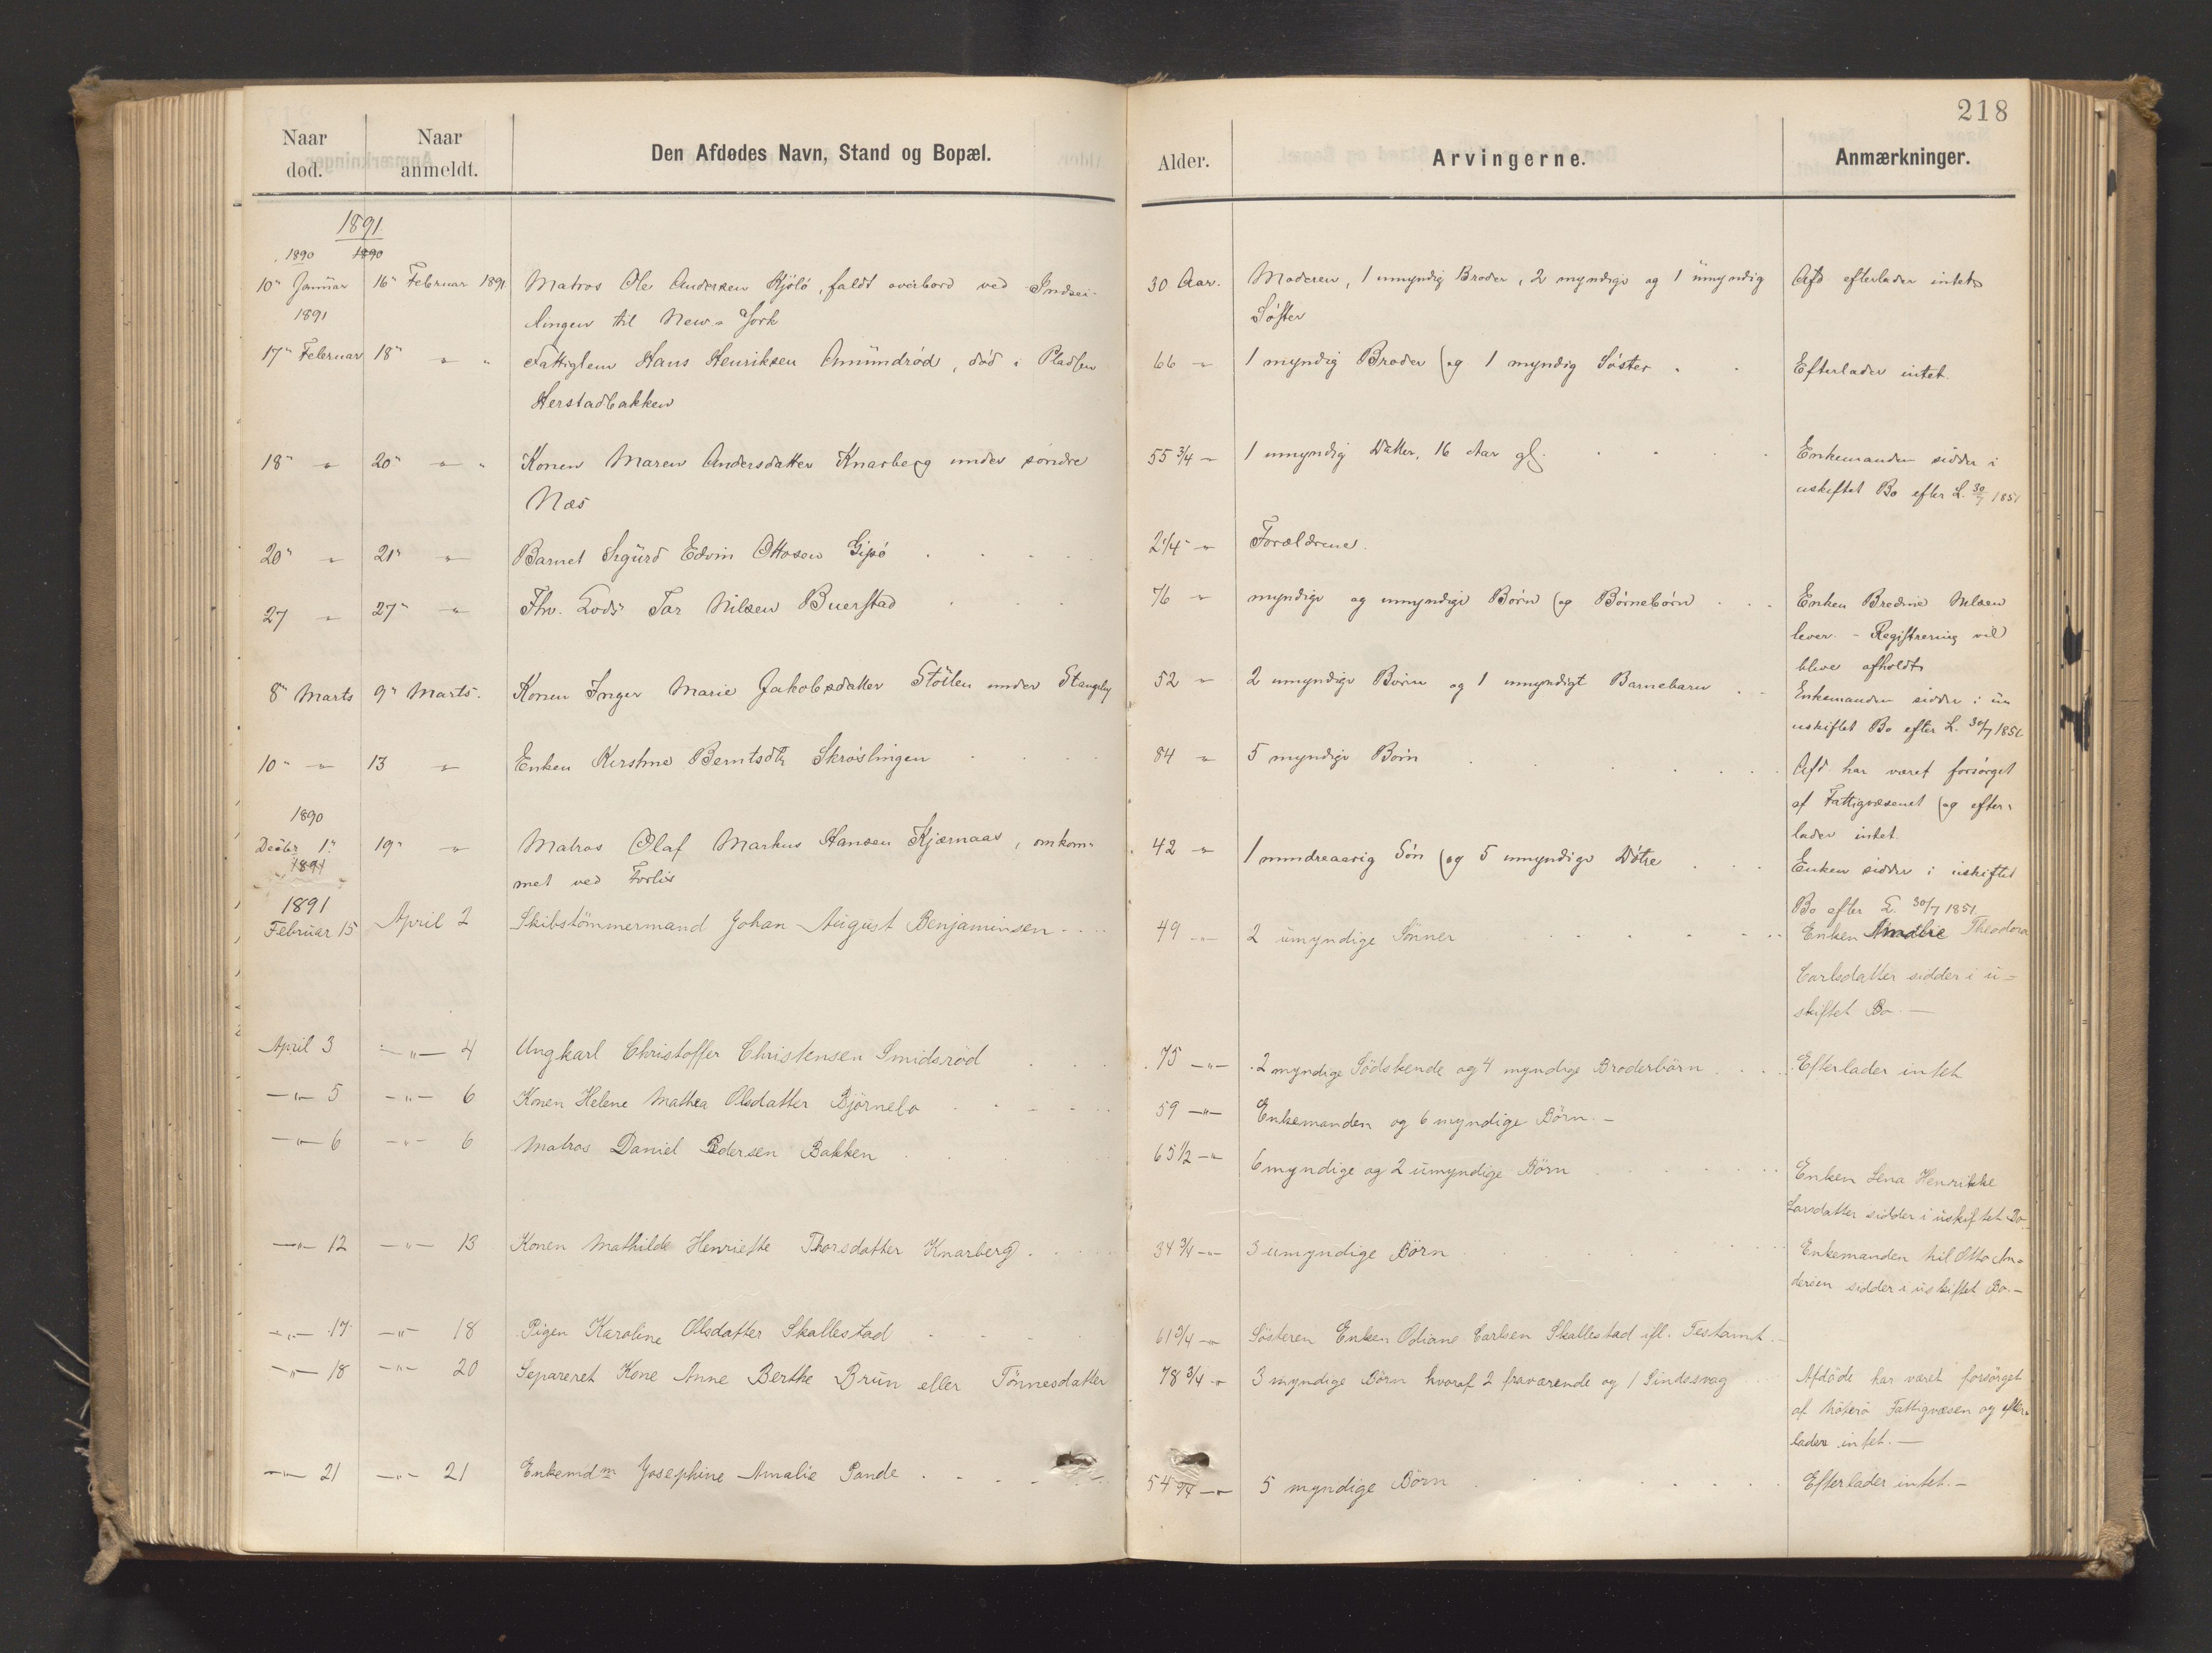 218
Naar død. Naar anmeldt. Den Afdødes Navn, Stand og Bopæl. Alder. Arvingerne. Anmærkninger.
1891
1890 1890
10" Januar 16" Februar 1891 Matros Ole Andersen Kjölö, faldt overbord ved Indsei- 30 Aar. Moderen, 1 umyndig Broder, 2 myndige og 1 umyndig Afd efterlader intet
lingen til New-York Søster
1891
17" Februar 18" " " Fattiglem Hans Henriksen Amundrød, død i Pladsen 66 " 1 myndig Broder og 1 myndig Søster Efterlader intet.
Herstadbakken
18" " 20" " " Konen Maren Andersdatter Knarberg under søndre 55 3/4 " 1 umyndig Datter, 16 Aar gl. Enkemanden sidder i
Næs uskiftet Bo efter L. 30/7 1851
20" " 21" " Barnet Sigurd Edvin Ottosen Gipø 2 1/4 " Forældrene.
27 " 27" " Fhv. Lods Tar Nilsen Buerstad 76 " myndige og umyndige Børn og Børnebørn Enken Bredine Nilsen
lever. - Registrering vil
blive afholdt
8" Marts 9" Marts. Konen Inger Marie Jakobsdatter Stöilen under Stangeby 52 " 2 umyndige Børn og 1 umyndigt Barnebarn Enkemanden sidder i u
uskiftet Bo efter L. 30/7 1851
10" " 13 " Enken Kirstine Berntsdtr Skrøslingen 84 " 5 myndige Børn Afd. har været forsørget
af Fattigvæsenet og efter-
lader intet.
1890
Decbr 1" 19" " Matros Olaf Markus Hansen Kjærnaas, omkom- 42 " 1 mindreaarig Søn og 5 umyndige Døtre Enken sidder i uskiftet
1891 met ved Forlis Bo efter L. 30/7 1851.
1891
Februar 15 April 2 Skibstömmermand Johan August Benjaminsen 49 " 2 umyndige Sönner Enken Amalie Theodora
Carlsdatter sidder i u-
skiftet Bo. —
April 3 —"— 4 Ungkarl Christoffer Christensen Smidsröd 75 —"— 2 myndige Södskende og 4 myndige Broderbörn Efterlader intet
—"— 5 —"— 6 Konen Helene Mathea Olsdatter Björnebo 59 —"— Enkemanden og 6 myndige Börn. —
—"— 6 —"— 6 Matros Daniel Pedersen Bakken 65 1/2 —"— 6 myndige og 2 umyndige Börn Enken Lena Henrikke
Larsdatter sidder i uskiftet Bo.
—"— 12 —"— 13 Konen Mathilde Henriette Thorsdatter Knarberg 34 3/4 —"— 3 umyndige Börn Enkemanden Nil Otto An-
dersen sidder i uskiftet Bo. —
—"— 17 —"— 18 Pigen Karoline Olsdatter Skallestad 61 3/4 —"— Søsteren Enken Odiane Carlsen Skallestad ifl. Testamt. —
—"— 18 —"— 20 Separeret Kone Anne Berthe Brun eller Tönnesdatter 78 3/4 —"— 3 myndige Börn hvoraf 2 fraværende og 1 Sindssvag Afdöde har været forsörget
af Nöterö Fattigvæsen og efter-
lader intet. —
—"— 21 —"— 21 Enkemdm Josephine Amalie Pande 54 —"— 5 myndige Börn Efterlader intet. —